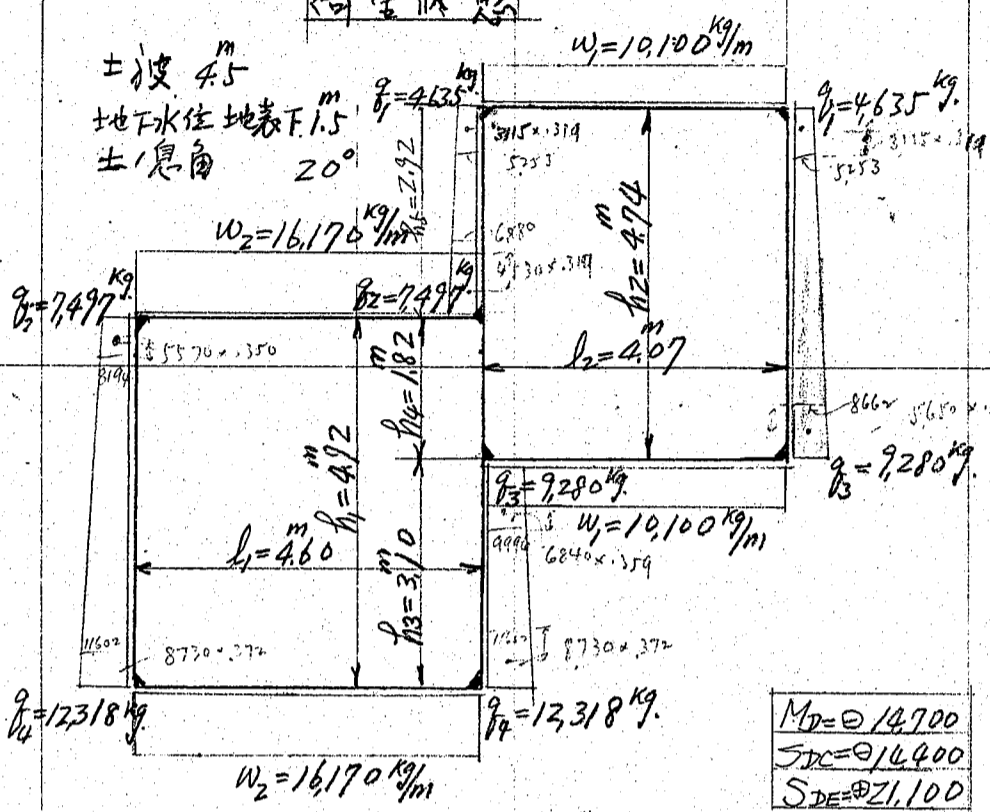 荷重状態
土被 4.5m
地下水位 地表下 1.5m
土ノ息角 20°
w₁=10,100 kg/m
q₁=4,635 kg.
q₁=4,635 kg.
3115×.319
5253
3115×.319
5253
h₅=2.92
w₂=16,170 kg/m
6880
4530×.319
q₂=7,497 kg.
q₂=7,497 kg
h₂=4.74m
5570×.350
8194
l₂=4.07m
h₄=1.82m
8662
h₁=4.92m
q₃=9,280 kg.
q₃=9,280 kg.
w₁=10,100 kg/m
9994
6840×.359
l₁=4.60m
h₃=3.10m
11602
8730×.372
8730×.372
q₄=12,318 kg.
q₄=12,318 kg.
w₂=16,170 kg/m
M_D=⊖14,700
S_DC=⊖14,400
S_DE=⊕21,100